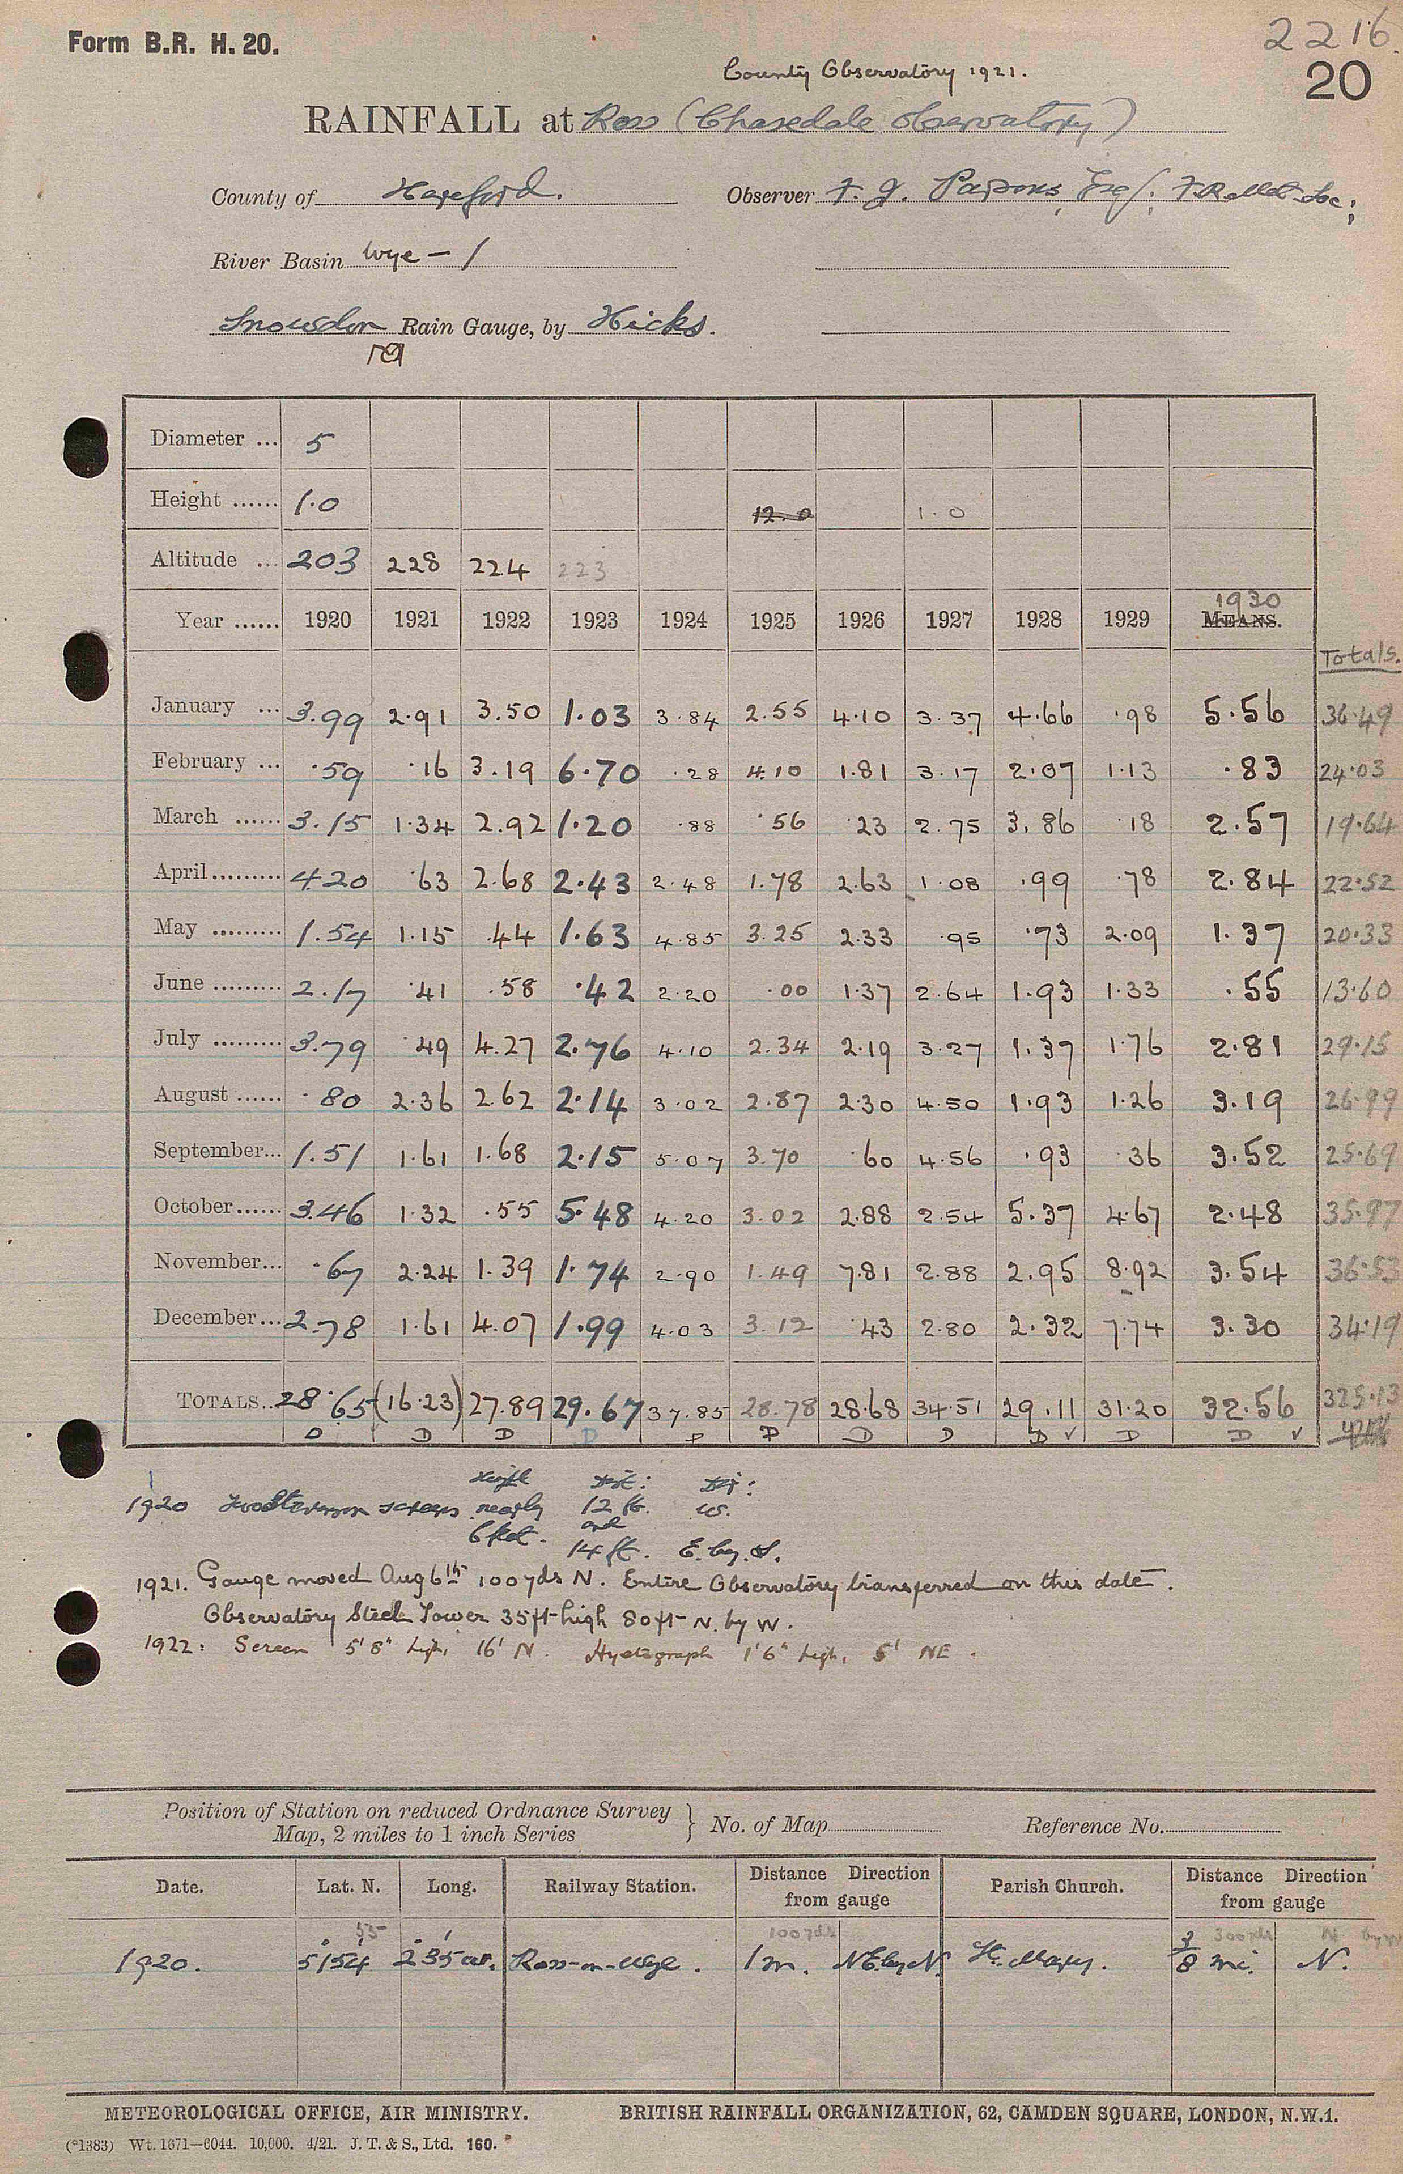 Form B.R. H. 20.
2216.
20
County Observatory 1921.
RAINFALL at Ross (Chasedale Observatory)
County of Hereford. Observer F. J. Parsons, Esq.; F.R.Met.Soc;
River Basin Wye - 1
Snowdon Rain Gauge, by Hicks.
Diameter ... 5
Height ...... 1.0 12.0 1.0
Altitude ... 203 228 224 223
1930
Year ...... 1920 1921 1922 1923 1924 1925 1926 1927 1928 1929 MEANS.
Totals.
January ... 3.99 2.91 3.50 1.03 3.84 2.55 4.10 3.37 4.66 .98 5.56 36.49
February ... .59 .16 3.19 6.70 .28 4.10 1.81 3.17 2.07 1.13 .83 24.03
March ...... 3.15 1.34 2.92 1.20 .88 .56 .23 2.75 3.86 .18 2.57 19.64
April......... 4.20 .63 2.68 2.43 2.48 1.78 2.63 1.08 .99 .78 2.84 22.52
May ......... 1.54 1.15 .44 1.63 4.85 3.25 2.33 .95 .73 2.09 1.37 20.33
June ......... 2.17 .41 .58 .42 2.20 .00 1.37 2.64 1.93 1.33 .55 13.60
July ......... 3.79 .49 4.27 2.76 4.10 2.34 2.19 3.27 1.37 1.76 2.81 29.15
August ...... .80 2.36 2.62 2.14 3.02 2.87 2.30 4.50 1.93 1.26 3.19 26.99
September... 1.51 1.61 1.68 2.15 5.07 3.70 .60 4.56 .93 .36 3.52 25.69
October...... 3.46 1.32 .55 5.48 4.20 3.02 2.88 2.54 5.37 4.67 2.48 35.97
November... .67 2.24 1.39 1.74 2.90 1.49 7.81 2.88 2.95 8.92 3.54 36.53
December... 2.78 1.61 4.07 1.99 4.03 3.12 .43 2.80 2.32 7.74 3.30 34.19
TOTALS.. 28.65 (16.23) 27.89 29.67 37.85 28.78 28.68 34.51 29.11 31.20 32.56 325.13
D D D D P P D D D √ D D √
Height Dist: Dir:
1920 Two Stevenson screens nearly 12 ft. W.
6 feet. and
14 ft. E. by S.
1921. Gauge moved Aug 6th 100 yds N. Entire Observatory transferred on this date.
Observatory Steel Tower 35ft high 80ft N. by W.
1922: Screen 5' 8" high, 16' N. Hyetograph 1' 6" high, 5' NE.
Position of Station on reduced Ordnance Survey
Map, 2 miles to 1 inch Series } No. of Map Reference No.
Date. Lat. N. Long. Railway Station. Distance Direction from gauge Parish Church. Distance Direction from gauge
55 100 yds 300 yds N by W
1920. 51°54' 2°35' W. Ross-on-Wye. 1 m. NE by N. St. Mary. 3/8 mi. N.
METEOROLOGICAL OFFICE, AIR MINISTRY. BRITISH RAINFALL ORGANIZATION, 62, CAMDEN SQUARE, LONDON, N.W.1.
(*1383) Wt. 1671—6044. 10,000. 4/21. J. T. & S., Ltd. 160.